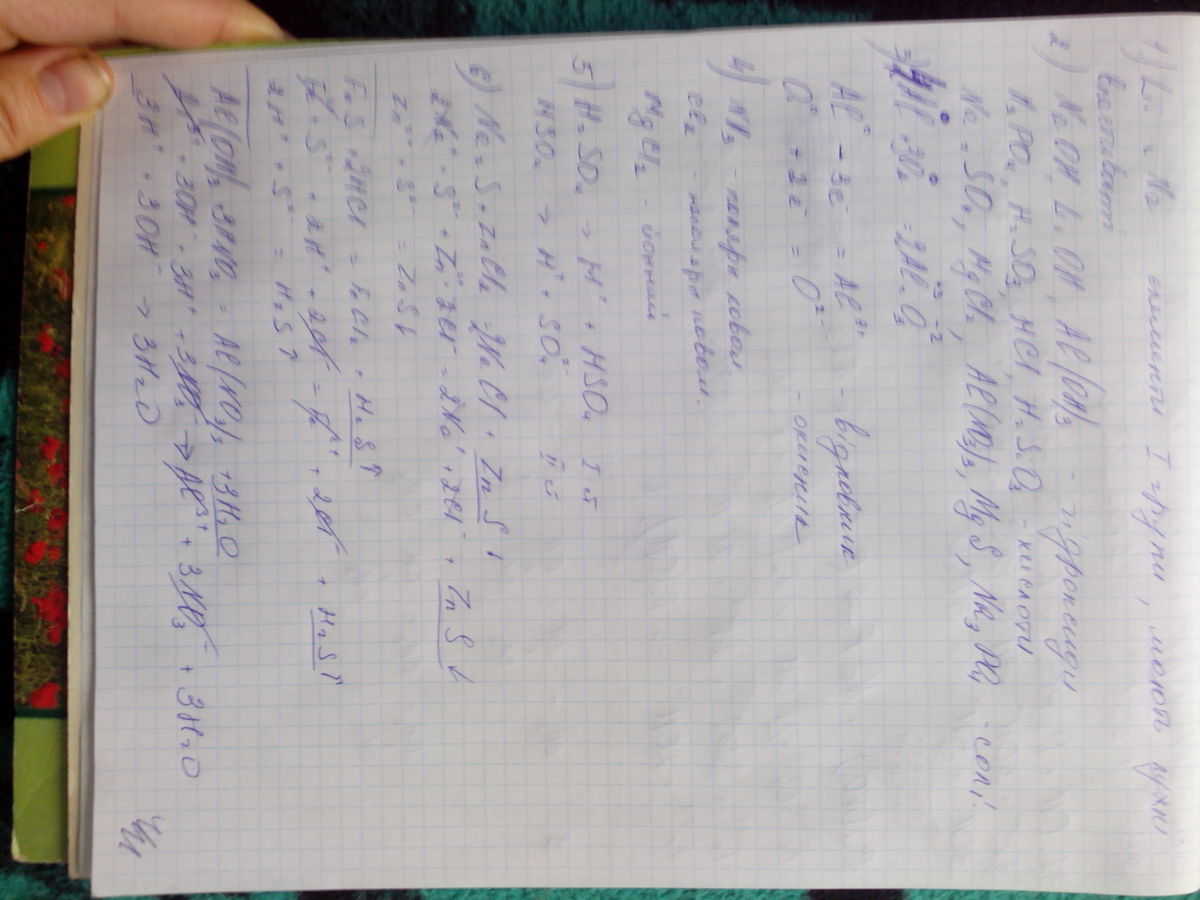 1) Li і Na елементи I групи, мають лужні
властивості
2) NaOH, LiOH, Al(OH)3 - гідроксиди
H3PO4, H2SO3, HCl, H2SiO3 - кислоти
Na2SO4, MgCl2, Al(NO3)3, MgS, Na3PO4 - солі.
3) Al⁰ + 3O2⁰ = 2Al2⁺³O3⁻²
Al⁰ - 3e⁻ = Al³⁺ - відновник
O⁰ + 2e⁻ = O²⁻ - окисник
4) NH3 - полярн ковал.
Cl2 - неполярн ковал.
MgCl2 - йонний
5) H2SO4 → H⁺ + HSO4 I ст
HSO4 → H⁺ + SO4²⁻ II ст
6) Na2S + ZnCl2 = 2NaCl + ZnS↓
2Na⁺ + S²⁻ + Zn²⁺ + 2Cl⁻ = 2Na⁺ + 2Cl⁻ + ZnS↓
Zn²⁺ + S²⁻ = ZnS↓
FeS + 2HCl = FeCl2 + H2S↑
Fe²⁺ + S²⁻ + 2H⁺ + 2Cl⁻ = Fe²⁺ + 2Cl⁻ + H2S↑
2H⁺ + S²⁻ = H2S↑
Al(OH)3 + 3HNO3 = Al(NO3)3 + 3H2O
Al³⁺ + 3OH⁻ + 3H⁺ + 3NO3⁻ → Al³⁺ + 3NO3⁻ + 3H2O
3H⁺ + 3OH⁻ → 3H2O